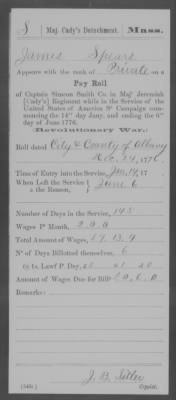 S | Maj. Cady's Detachment. | Mass.
James Spears
Appears with the rank of Private on a
Pay Roll
of Captain Simeon Smith Co. in Majr Jeremiah
[Cady's] Regiment while in the Service of the
United States of America No Campaign com-
mencing the 14th day Jany. and ending the 6th
day of June 1776.
(Revolutionary War.)
Roll dated City & County of Albany
24, 1776.
Time of Entry into the Service, Jan. 14, 17
When Left the Service } June 6
& the Reason,
Number of Days in the Service, 145
Wages P Month,
Total Amount of Wages,
No of Days Billotted themselves, 6
Lawf P Day,
Amount of Wages Due for Billt
Remarks:
J. B.
(540c) Copyist.